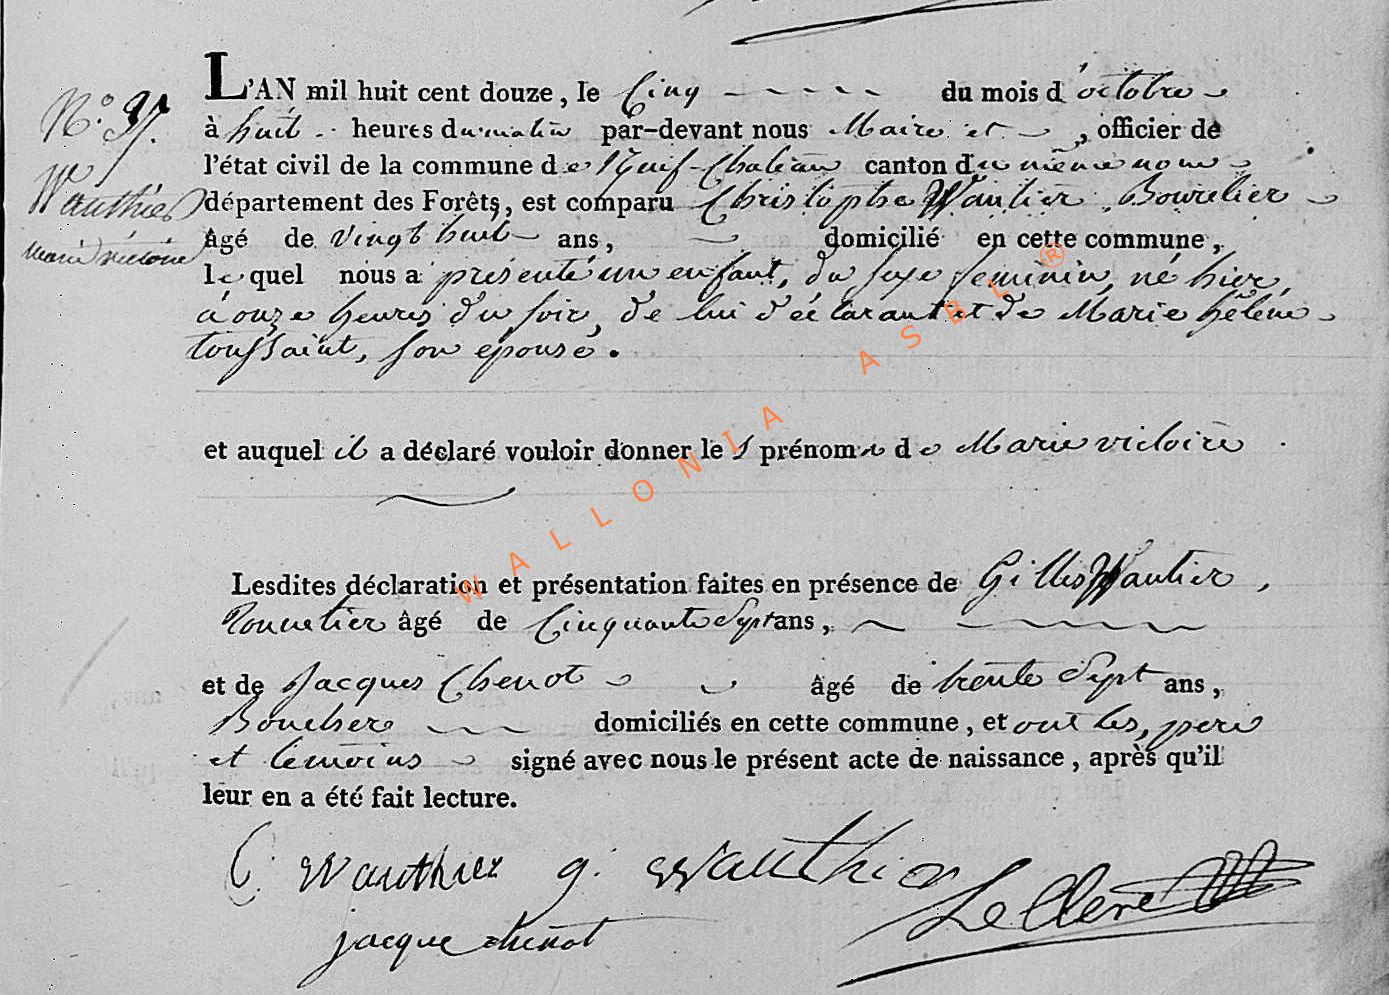 L'AN mil huit cent douze, le Cinq du mois d'octobre
à huit heures du matin par-devant nous Maire et , officier de
l'état civil de la commune de Neuf-Chateau canton du même nom
département des Forêts, est comparu Christophe Wautier, Bourelier
âgé de vingt huit ans, domicilié en cette commune,
lequel nous a présenté un enfant, du sexe feminin, né hier,
à onze heures du soir, de lui déclarant et de Marie hélène
toussaint, son epouse.
et auquel il a déclaré vouloir donner les prénoms de Marie victoire
Lesdites déclaration et présentation faites en présence de Gilles Wautier,
âgé de Cinquante Sept ans,
et de Jacques Chenot âgé de trente Sept ans,
Boucher domiciliés en cette commune, et ont les, pere
et temoins signé avec nous le présent acte de naissance, après qu'il
leur en a été fait lecture.
C. Wauthier g. Wauthier
LeClerc
jacque chenot
N.°
Wauthier
marie victoire
WALLONIA ASBL ®